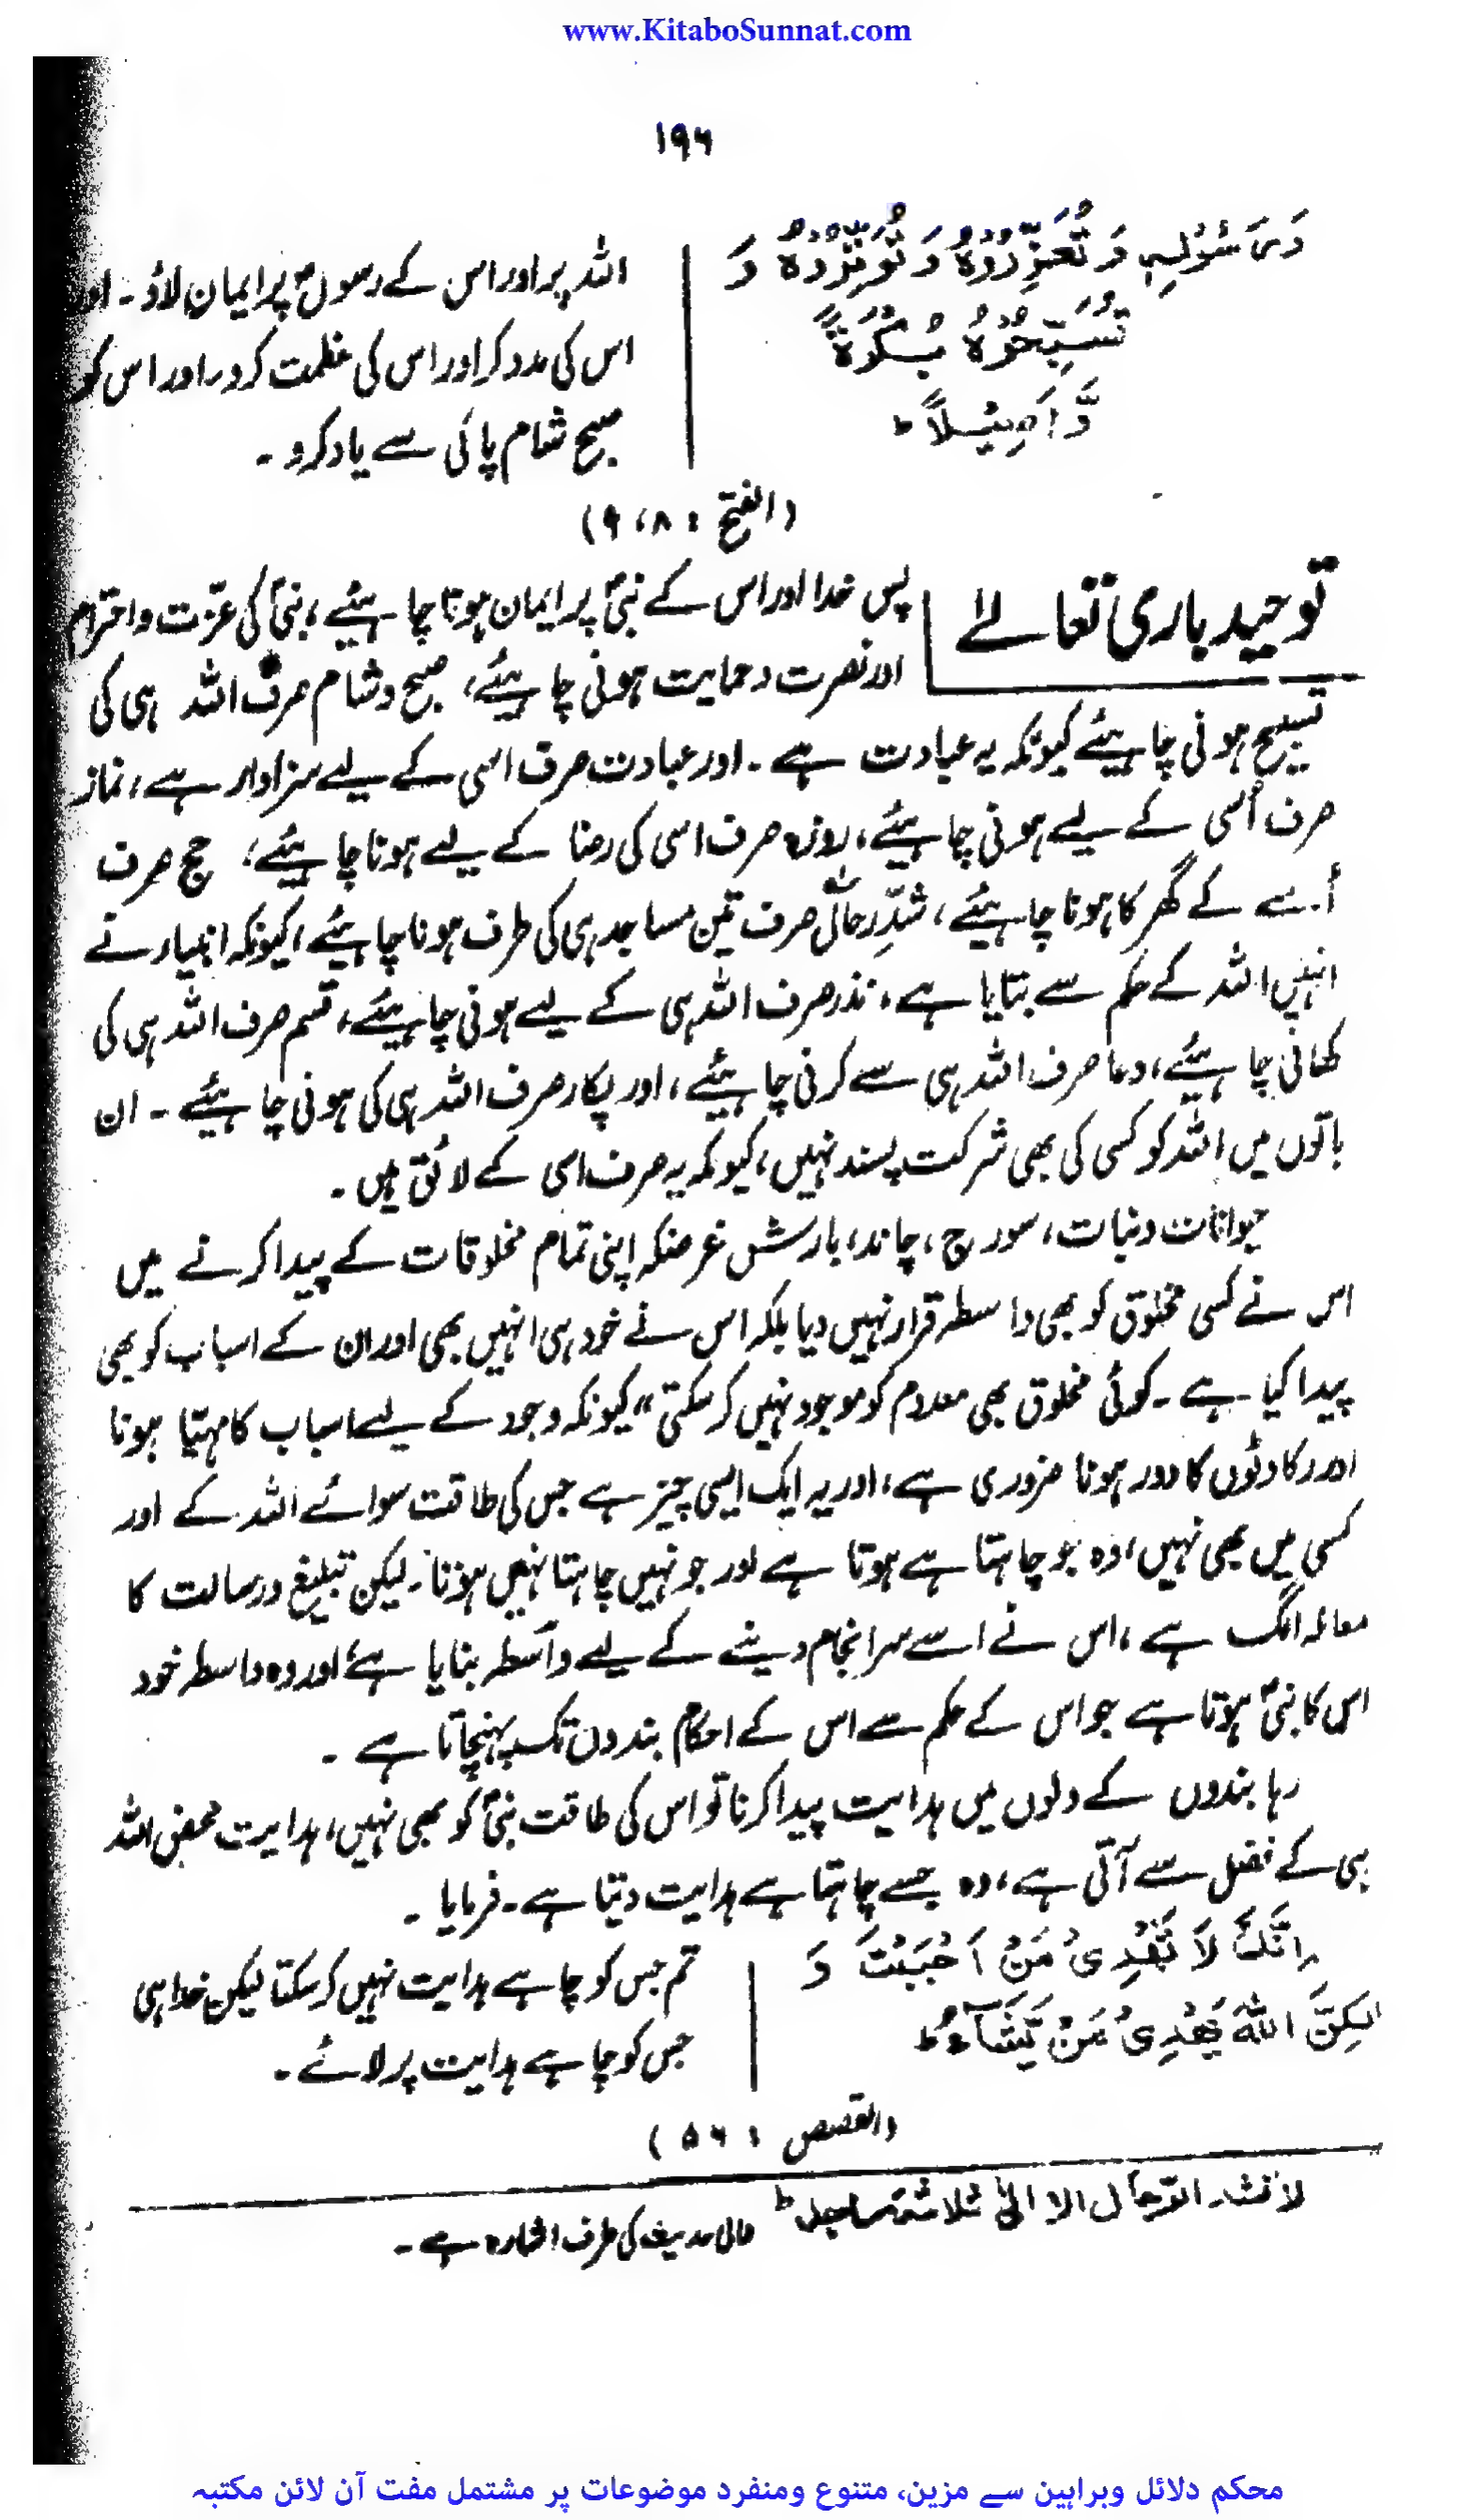 www.KitaboSunnat.com
۱۹۶
وَرَسُوْلِہٖ وَتُعَزِّرُوْہُ وَتُوَقِّرُوْہُ وَ
تُسَبِّحُوْہُ بُکْرَۃً
وَّاَصِیْلًاط
اللہ پر اور اس کے رسولؐ پر ایمان لاؤ۔ اور
اس کی مدد کر اور اس کی عظمت کرو، اور اس کو
صبح شام پاکی سے یاد کرو۔
(الفتح : ۸، ۹)
توحید باری تعالےٰ
پس خدا اور اس کے نبیؐ پر ایمان ہونا چاہیئے، نبیؐ کی عزت و احترام
اور نصرت و حمایت ہونی چاہیئے، صبح و شام صرف اللہ ہی کی
تسبیح ہونی چاہیئے کیونکہ یہ عبادت ہے۔ اور عبادت صرف اسی کے لیے سزاوار ہے، نماز
صرف اُسی کے لیے ہونی چاہیئے، روزہ صرف اسی کی رضا کے لیے ہونا چاہیئے، حج صرف
اُسے کے گھر کا ہونا چاہیئے، شدِّ رحال صرف تین مساجد ہی کی طرف ہونا چاہیئے، کیونکہ انبیاء نے
انہیں اللہ کے حکم سے بتایا ہے، نذر صرف اللہ ہی کے لیے ہونی چاہیئے، قسم صرف اللہ ہی کی
کھانی چاہیئے، دعا صرف اللہ ہی سے کرنی چاہیئے، اور پکار صرف اللہ ہی کی ہونی چاہیئے۔ ان
باتوں میں اللہ کو کسی کی بھی شرکت پسند نہیں، کیونکہ یہ صرف اسی کے لائق ہیں۔
حیوانات و نبات، سورج، چاند، بارش غرضکہ اپنی تمام مخلوقات کے پیدا کرنے میں
اس نے کسی مخلوق کو بھی واسطہ قرار نہیں دیا بلکہ اس نے خود ہی انہیں بھی اور ان کے اسباب کو بھی
پیدا کیا ہے۔ کوئی مخلوق بھی معدوم کو موجود نہیں کر سکتی، کیونکہ وجود کے لیے اسباب کا مہیّا ہونا
اور رکاوٹوں کا دور ہونا ضروری ہے، اور یہ ایک ایسی چیز ہے جس کی طاقت سوائے اللہ کے اور
کسی میں بھی نہیں، وہ جو چاہتا ہے ہوتا ہے اور جو نہیں چاہتا نہیں ہوتا۔ لیکن تبلیغ و رسالت کا
معاملہ الگ ہے، اس نے اسے سرانجام دینے کے لیے واسطہ بنایا ہے اور وہ واسطہ خود
اس کا نبیؐ ہوتا ہے جو اس کے حکم سے اس کے احکام بندوں تک پہنچاتا ہے۔
رہا بندوں کے دلوں میں ہدایت پیدا کرنا تو اس کی طاقت نبیؐ کو بھی نہیں، ہدایت محض اللہ
ہی کے فضل سے آتی ہے، وہ جسے چاہتا ہے ہدایت دیتا ہے۔ فرمایا۔
اِنَّکَ لَا تَھْدِیْ مَنْ اَحْبَبْتَ وَ
لٰکِنَّ اللّٰہَ یَھْدِیْ مَنْ یَّشَآءُط
تم جس کو چاہے ہدایت نہیں کر سکتا لیکن خدا ہی
جس کو چاہے ہدایت پر لائے۔
(القصص : ۵۶)
لا تشد الرّحال الا الیٰ ثلاثۃ مساجد ط والی حدیث کی طرف اشارہ ہے۔
محکم دلائل وبراہین سے مزین، متنوع ومنفرد موضوعات پر مشتمل مفت آن لائن مکتبہ